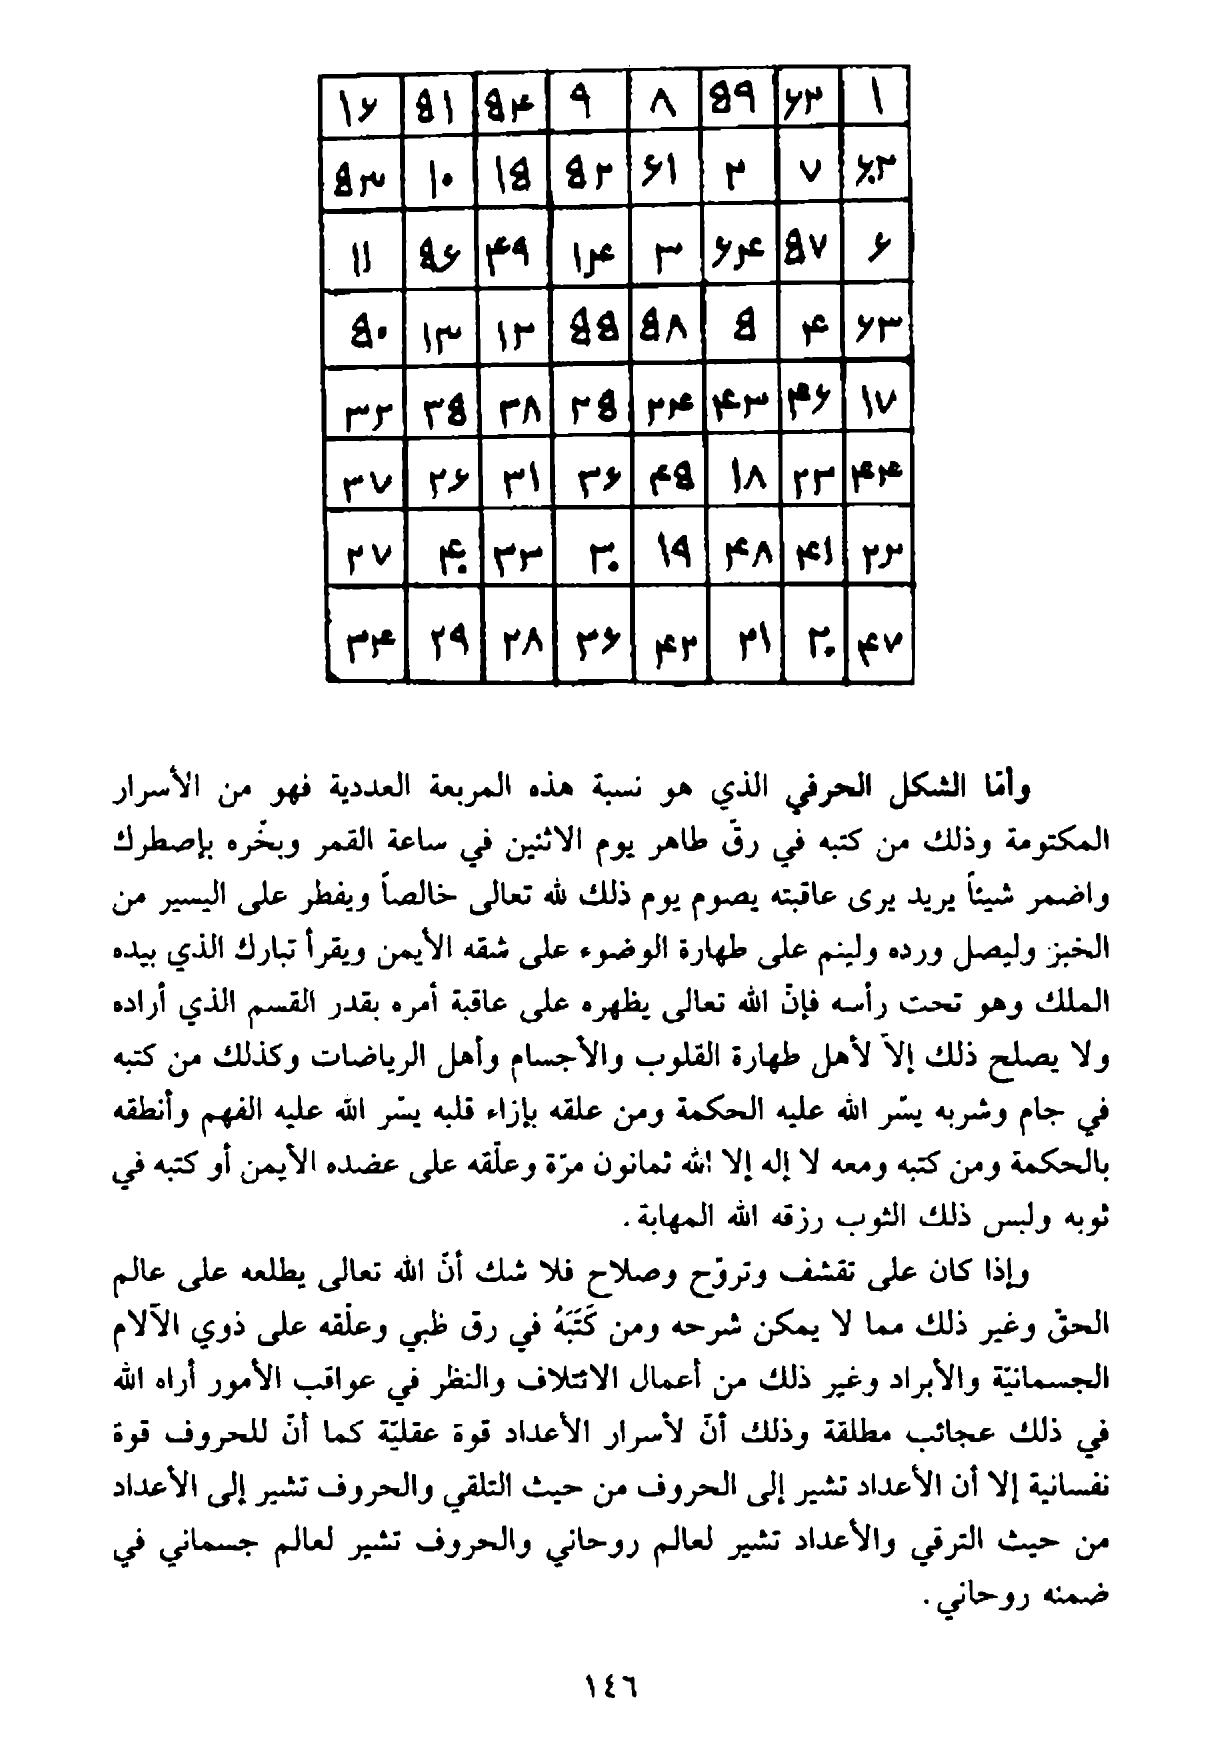 ۱۶ ۵۱ ۵۴ ۹ ۸ ۵۹ ۶۲ ۱
۵۳ ۱۰ ۱۵ ۵۲ ۶۱ ۲ ۷ ۶۰
۱۱ ۵۶ ۴۹ ۱۴ ۳ ۶۴ ۵۷ ۶
۵۰ ۱۳ ۱۲ ۵۵ ۵۸ ۵ ۴ ۶۳
۳۲ ۳۵ ۳۸ ۲۵ ۲۴ ۴۳ ۴۶ ۱۷
۳۷ ۲۶ ۳۱ ۳۶ ۴۵ ۱۸ ۲۳ ۴۴
۲۷ ۴۰ ۳۳ ۳۰ ۱۹ ۴۸ ۴۱ ۲۲
۳۴ ۲۹ ۲۸ ۳۶ ۴۲ ۲۱ ۲۰ ۴۷
وأمّا الشكل الحرفي الذي هو نسبة هذه المربعة العددية فهو من الأسرار
المكتومة وذلك من كتبه في رقّ طاهر يوم الاثنين في ساعة القمر وبخّره بإصطرك
واضمر شيئاً يريد يرى عاقبته يصوم يوم ذلك لله تعالى خالصاً ويفطر على اليسير من
الخبز وليصل ورده ولينم على طهارة الوضوء على شقه الأيمن ويقرأ تبارك الذي بيده
الملك وهو تحت رأسه فإنّ الله تعالى يظهره على عاقبة أمره بقدر القسم الذي أراده
ولا يصلح ذلك إلاّ لأهل طهارة القلوب والأجسام وأهل الرياضات وكذلك من كتبه
في جام وشربه يسّر الله عليه الحكمة ومن علقه بإزاء قلبه يسّر الله عليه الفهم وأنطقه
بالحكمة ومن كتبه ومعه لا إله إلا الله ثمانون مرّة وعلّقه على عضده الأيمن أو كتبه في
ثوبه ولبس ذلك الثوب رزقه الله المهابة .
وإذا كان على تقشف وتروّح وصلاح فلا شك أنّ الله تعالى يطلعه على عالم
الحقّ وغير ذلك مما لا يمكن شرحه ومن كَتَبَهُ في رق ظبي وعلّقه على ذوي الآلام
الجسمانيّة والأبراد وغير ذلك من أعمال الائتلاف والنظر في عواقب الأمور أراه الله
في ذلك عجائب مطلقة وذلك أنّ لأسرار الأعداد قوة عقليّة كما أنّ للحروف قوة
نفسانية إلا أن الأعداد تشير إلى الحروف من حيث التلقي والحروف تشير إلى الأعداد
من حيث الترقي والأعداد تشير لعالم روحاني والحروف تشير لعالم جسماني في
ضمنه روحاني .
١٤٦